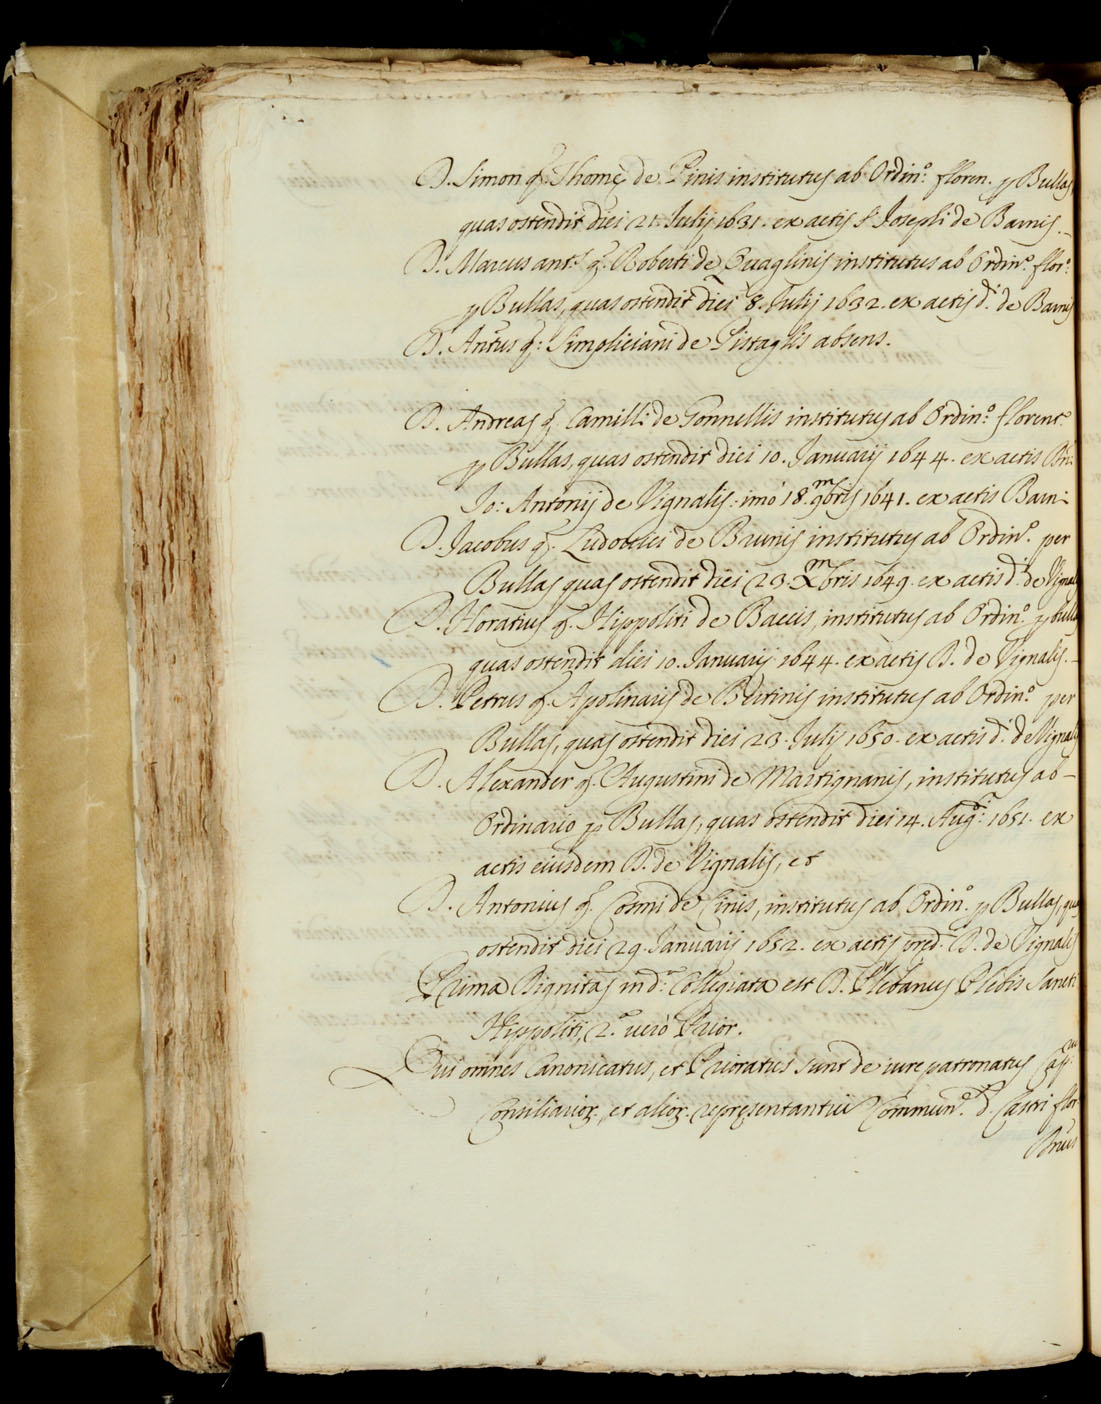 D. Simon q. Thomę de Pinis institutus ab Ordin.º floren. p Bullas
quas ostendit diei 21. Julij 1631. ex actis S. Josephi de Barnis.
D. Marcus ant.s q. Roberti de Quaglinis institutus ab Ordin.º flor.
p Bullas, quas ostendit diei 8. Julij 1632. ex actis d. de Barnis
D. Antus q: Simpliciani de Pistaglis absens.
D. Andreas q. Camilli de Gonnellis institutus ab Ordin.º florent.
p Bullas, quas ostendit diei 10. Januarij 1644. ex actis
Jo: Antonij de Vignalis: imò 18. 9mbris 1641. ex actis Barn:
D. Jacobus q. Ludovici de Brunis institutus ab Ordin.º per
Bullas quas ostendit diei 23. Xmbris 1649. ex actis d. de Vignal
D. Horatius q. Hippoliti de Baccis, institutus ab Ordin.º p bullas
quas ostendit diei 10. Januarij 1644. ex actis D. de Vignalis.
D. Petrus q. Apolinaris de Bertinis institutus ab Ordin.º per
Bullas, quas ostendit diei 23. Julij 1650. ex actis d. de Vignalis
D. Alexander q. Augustini de Martignanis, institutus ab
Ordinario p Bullas, quas ostendit diei 14. Aug.i 1651. ex
actis eiusdem D. de Vignalis, et
D. Antonius q. Cosmi de Cinis, institutus ab Ordin.º p Bullas, quas
ostendit diei 29. Januarij 1652. ex actis pred. D. de Vignalis
Prima Dignitas in d. Collegiata est D. Plebanus Plebis Sancti
Hippoliti, 2.a verò Prior.
Qui omnes Canonicatus, et Prioratus sunt de iure patronatus
Consiliarior. et alior. representantiũ Commun. d. Castri flor